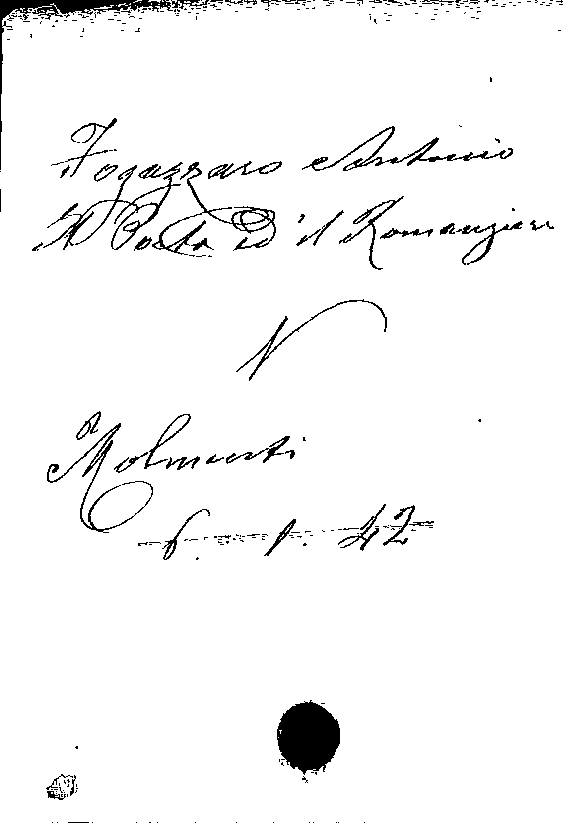 Fogazzaro Antonio
Il Poeta ed il Romanziere
V
Molmenti
6. 1. 42